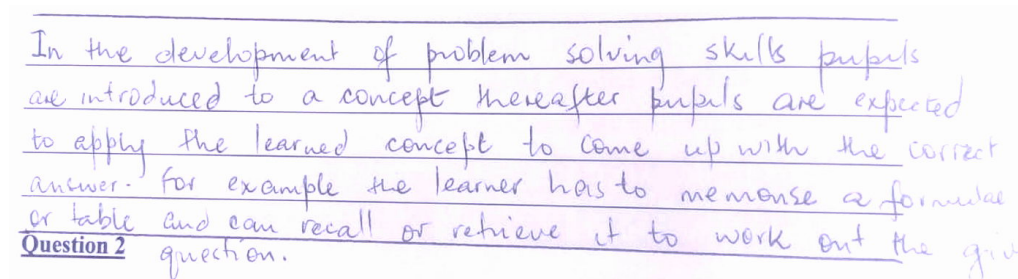 In the development of problem solving skills pupils
are introduced to a concept thereafter pupils are expected
to apply the learned concept to come up with the correct
answer. For example the learner has to memorise a formulae
or table and can recall or retrieve it to work out the giv
Question 2 question.